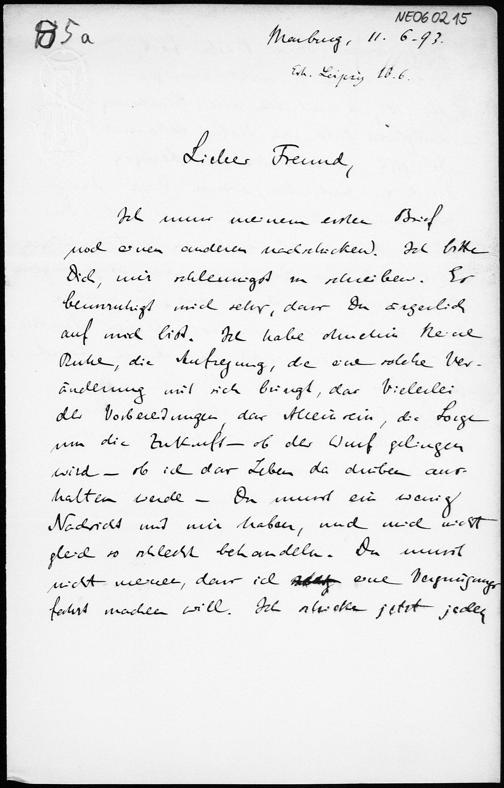 NE060215
5a
Marburg, 11. 6. 93.
Erh. Leipzig 10.6.
Lieber Freund,
Ich muss meinem ersten Brief
noch einen anderen nachschicken. Ich bitte
Dich, mir schleunigst zu schreiben. Es
beunruhigt mich sehr, dass Du ärgerlich
auf mich bist. Ich habe ohnehin keine
Ruhe, die Aufregung, die eine solche Ver-
änderung mit sich bringt, das Vielerlei
der Vorbereitungen, das Alleinsein, die Sorge
um die Zukunft – ob der Wurf gelingen
wird – ob ich das Leben da drüben aus-
halten werde – Du musst ein wenig
Nachsicht mit mir haben, und mich nicht
gleich so schlecht behandeln. Du musst
nicht meinen, dass ich eine Vergnügungs
fahrt machen will. Ich schicke jetzt jeden